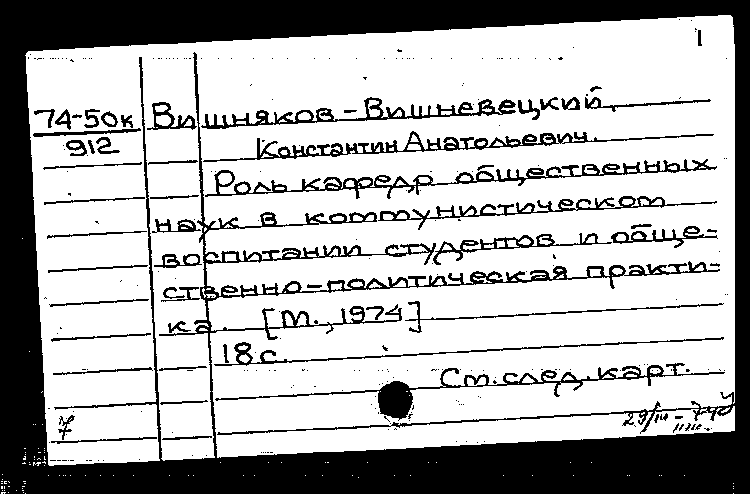 1
74-50к Вишняков-Вишневецкий,
912 Константин Анатольевич.
Роль кафедр общественных
наук в коммунистическом
воспитании студентов и обще-
ственно-политическая практи-
ка. [М., 1974]
18 с.
См. след. карт.
7